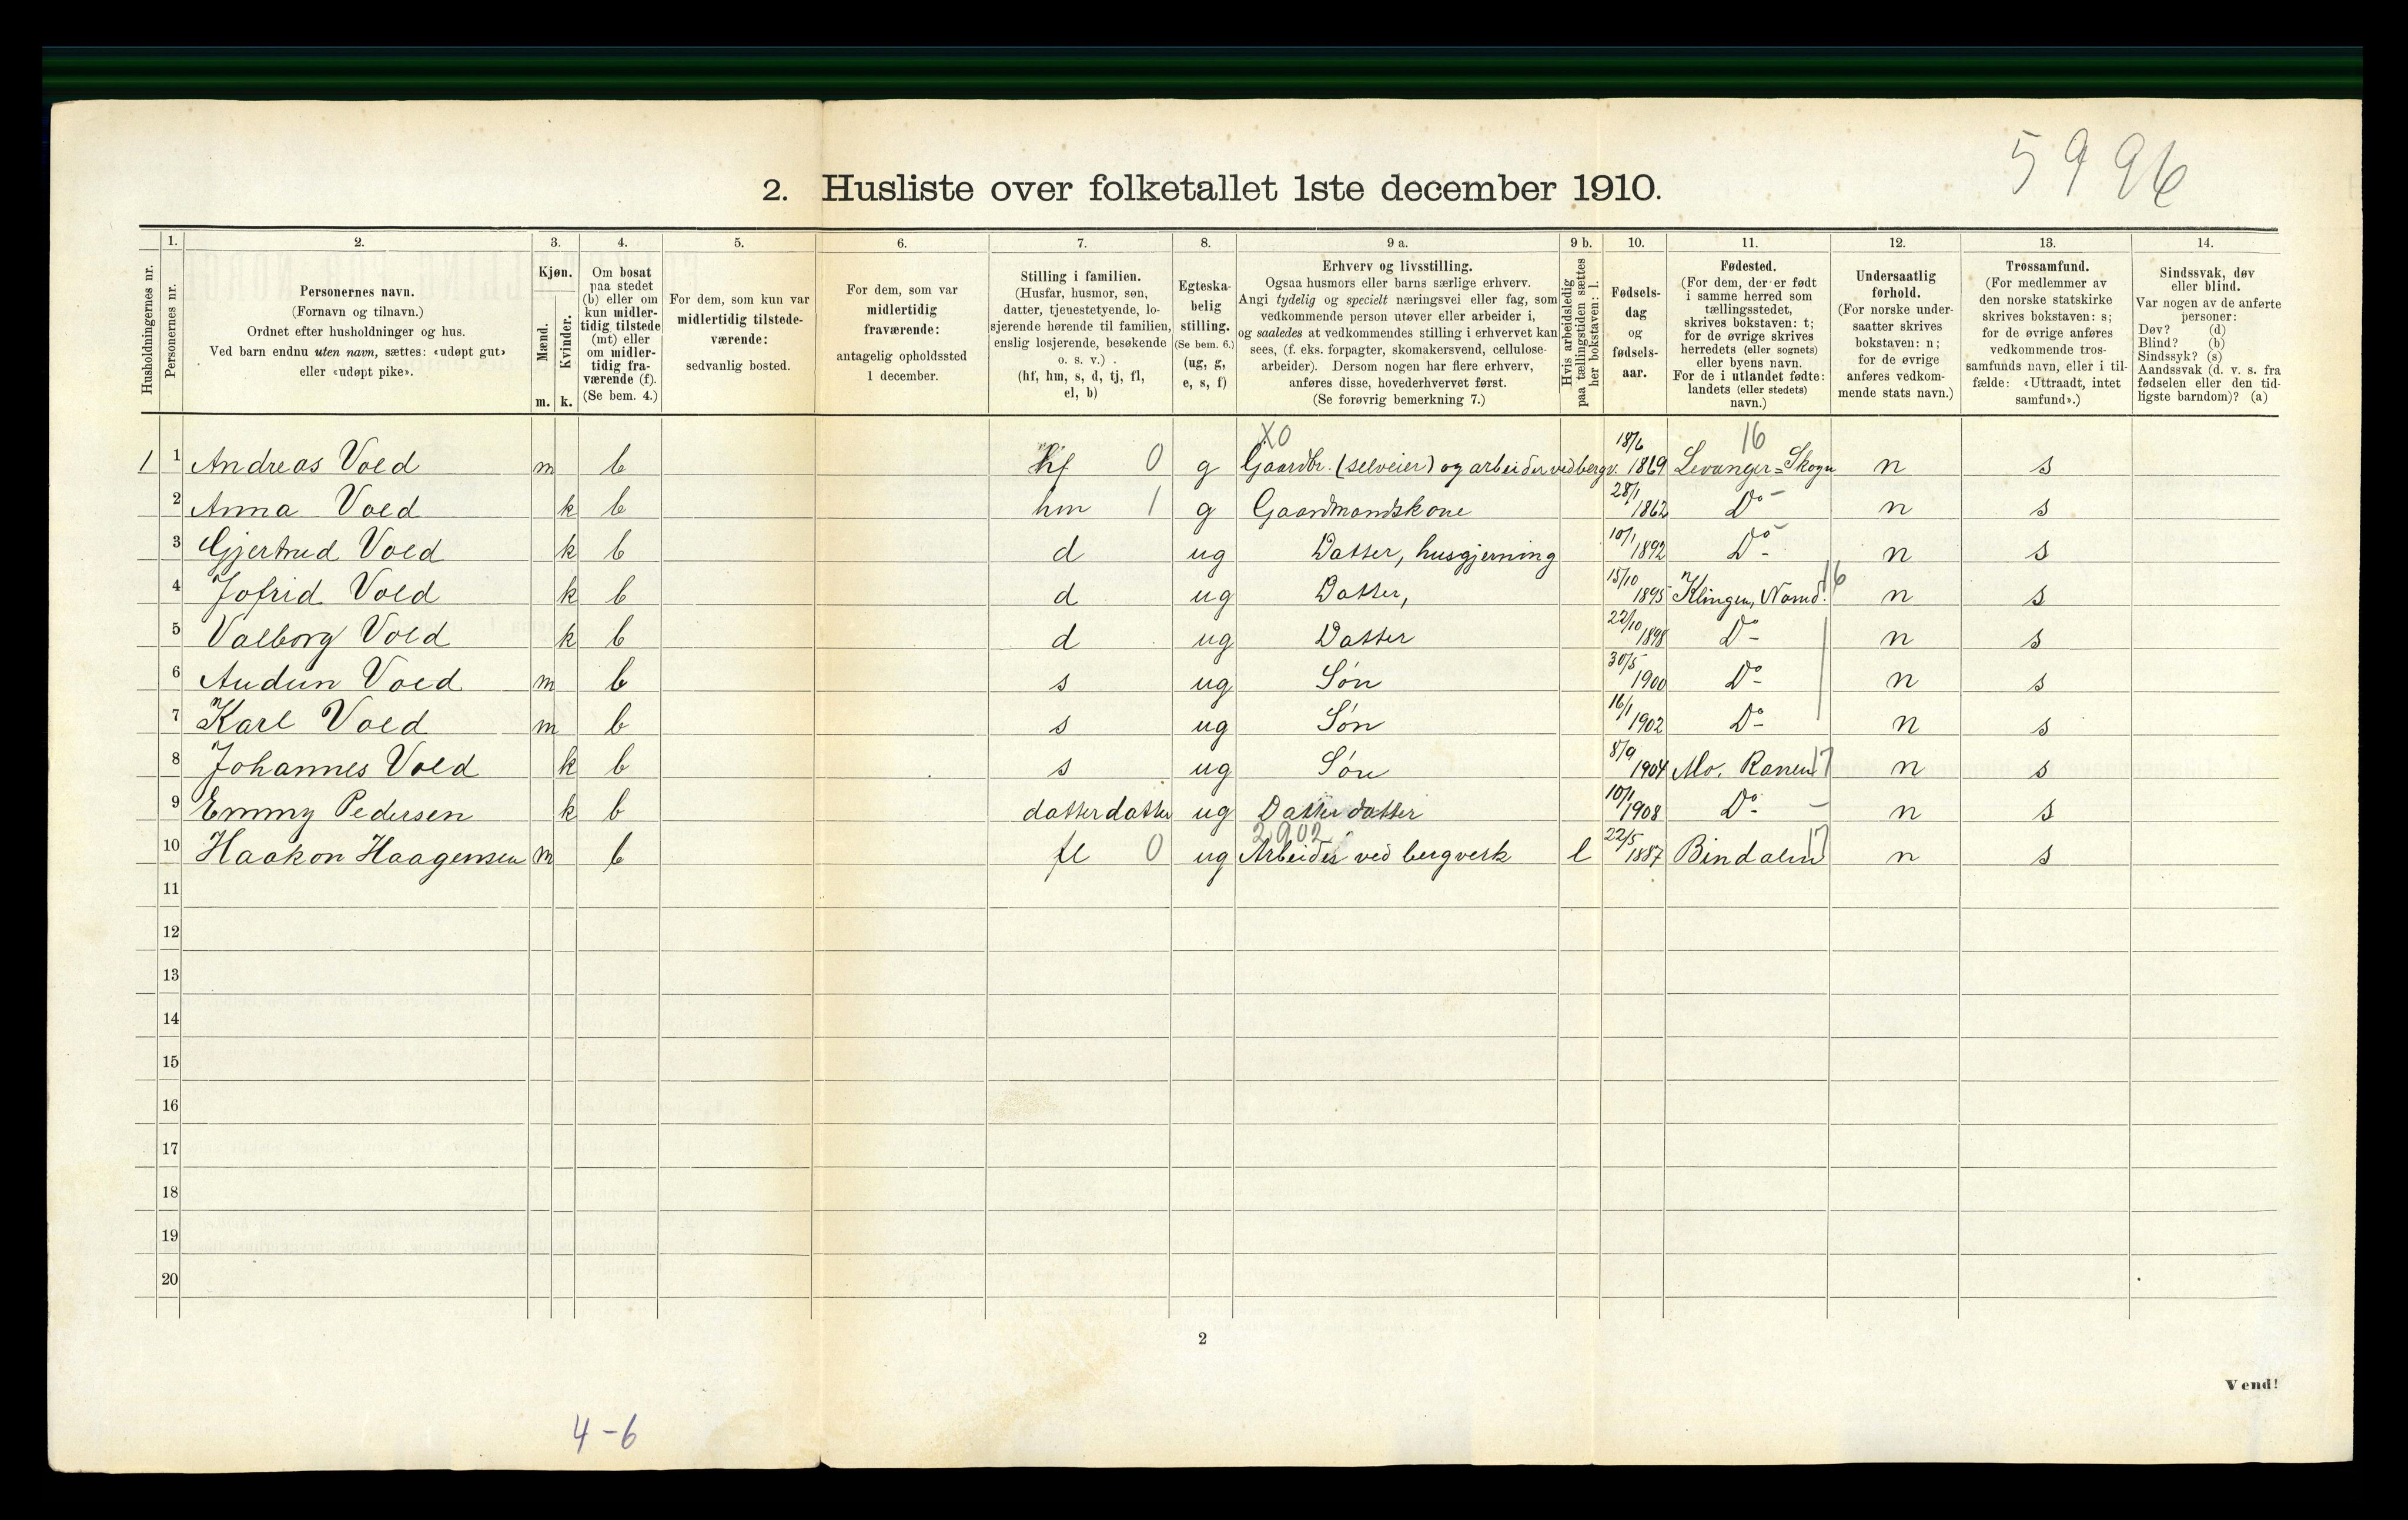 5996
2. Husliste over folketallet 1ste december 1910.
Husholdningernes nr.
1.
Personernes nr.
2.
Personernes navn.
(Fornavn og tilnavn.)
Ordnet efter husholdninger og hus.
Ved barn endnu uten navn, sættes: «udøpt gut»
eller «udøpt pike».
3.
Kjøn.
Mænd.
Kvinder.
m. k.
4.
Om bosat
paa stedet
(b) eller om
kun midler-
tidig tilstede
(mt) eller
om midler-
tidig fra-
værende (f).
(Se bem. 4.)
5.
For dem, som kun var
midlertidig tilstede-
værende:
sedvanlig bosted.
6.
For dem, som var
midlertidig
fraværende:
antagelig opholdssted
1 december.
7.
Stilling i familien.
(Husfar, husmor, søn,
datter, tjenestetyende, lo-
sjerende hørende til familien,
enslig losjerende, besøkende
o. s. v.)
(hf, hm, s, d, tj, fl,
el, b)
8.
Egteska-
belig
stilling.
(Se bem. 6.)
(ug, g,
e, s, f)
9 a.
Erhverv og livsstilling.
Ogsaa husmors eller barns særlige erhverv.
Angi tydelig og specielt næringsvei eller fag, som
vedkommende person utøver eller arbeider i,
og saaledes at vedkommendes stilling i erhvervet kan
sees, (f. eks. forpagter, skomakersvend, cellulose-
arbeider). Dersom nogen har flere erhverv,
anføres disse, hovederhvervet først.
(Se forøvrig bemerkning 7.)
9 b.
Hvis arbeidsledig
paa tællingstiden sættes
her bokstaven: l.
10.
Fødsels-
dag
og
fødsels-
aar.
11.
Fødested.
(For dem, der er født
i samme herred som
tællingsstedet,
skrives bokstaven: t;
for de øvrige skrives
herredets (eller sognets)
eller byens navn.
For de i utlandet fødte:
landets (eller stedets)
navn.)
12.
Undersaatlig
forhold.
(For norske under-
saatter skrives
bokstaven: n;
for de øvrige
anføres vedkom-
mende stats navn.)
13.
Trossamfund.
(For medlemmer av
den norske statskirke
skrives bokstaven: s;
for de øvrige anføres
vedkommende tros-
samfunds navn, eller i til-
fælde: «Uttraadt, intet
samfund».)
14.
Sindssvak, døv
eller blind.
Var nogen av de anførte
personer:
Døv? (d)
Blind? (b)
Sindssyk? (s)
Aandssvak (d. v. s. fra
fødselen eller den tid-
ligste barndom)? (a)
X0 18/6 16
1 1 Andreas Vold m b hf 0 g Gaardbr. (selveier) og arbeider ved bergv. 1869 Levanger=Skogn n s
2 Anna Vold k b hm 1 g Gaardmandskone 28/1 1862 Do- n s
3 Gjertrud Vold k b d ug Datter, husgjerning 10/1 1892 Do- n s
4 Jofrid Vold k b d ug Datter, 15/10 1895 Klingen, Namd. 16 n s
5 Valborg Vold k b d ug Datter 22/10 1898 Do- n s
6 Audun Vold m b s ug Søn 30/5 1900 Do- n s
7 Karl Vold m b s ug Søn 16/1 1902 Do- n s
8 Johannes Vold k b s ug Søn 8/9 1904 Mo, Ranen 17 n s
9 Emmy Pedersen k b datterdatter ug Datterdatter 10/1 1908 Do- n s
2902
10 Haakon Haagensen m b fl 0 ug Arbeider ved bergverk l 22/5 1887 Bindalen 17 n s
11
12
13
14
15
16
17
18
19
20
2
Vend!
4-6